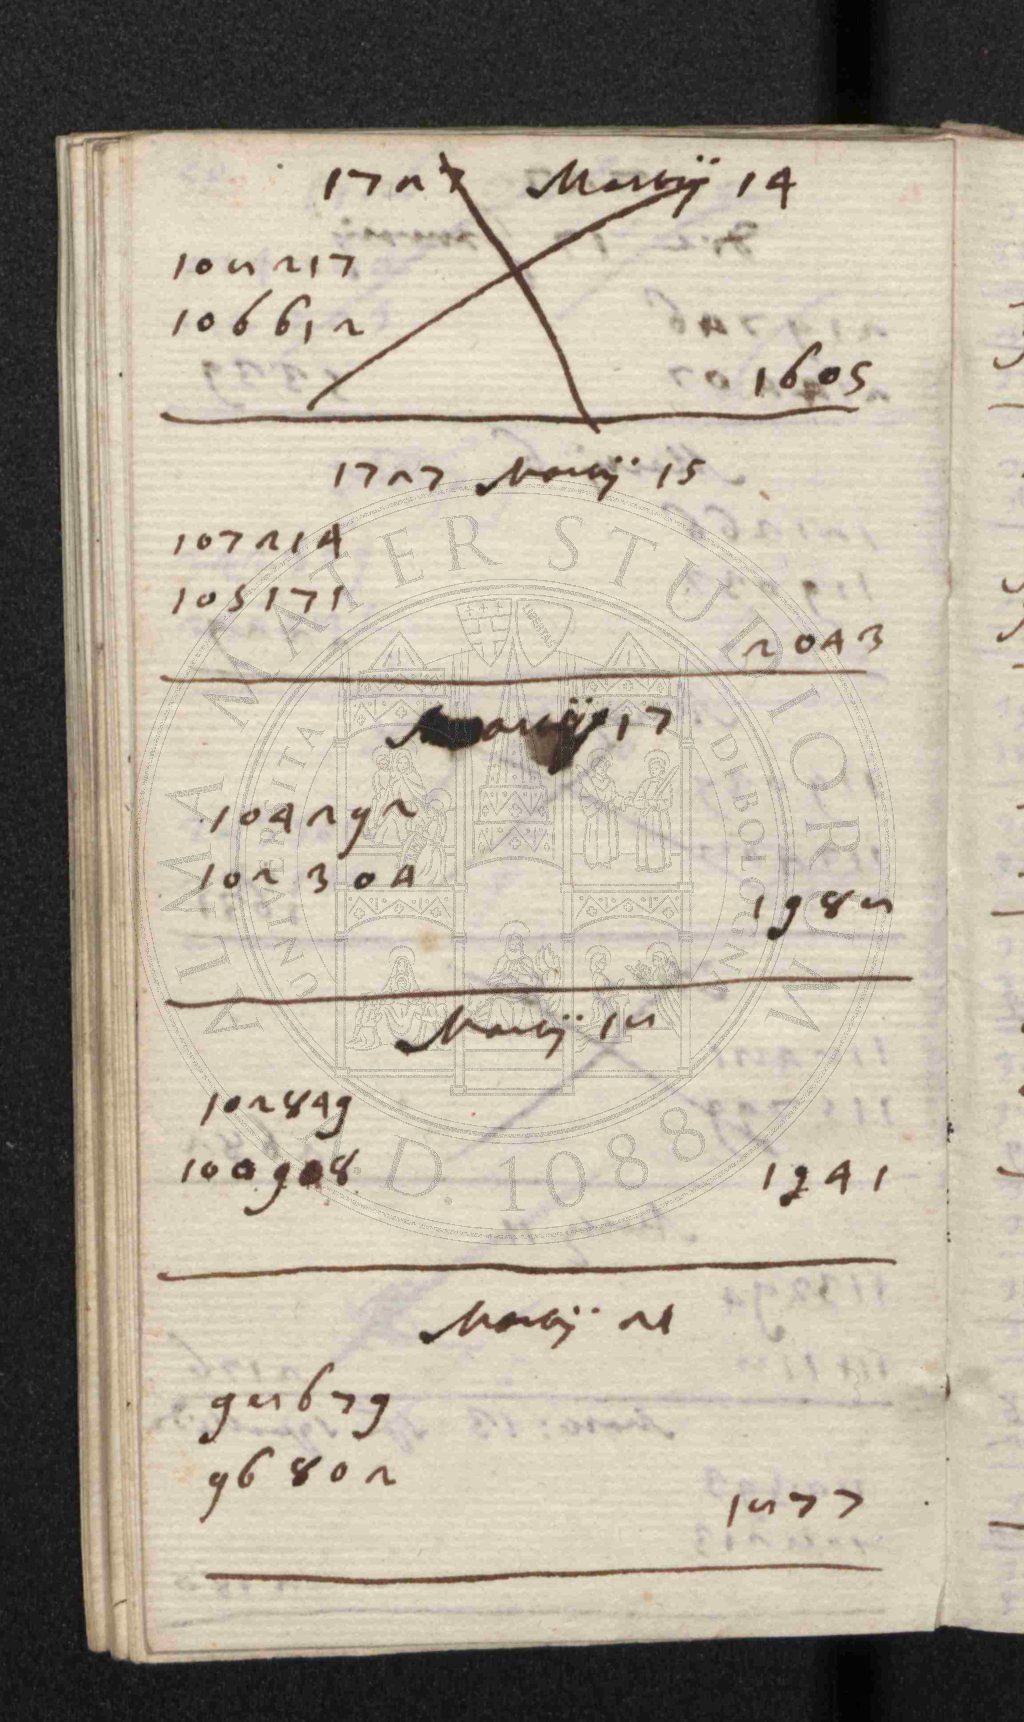 1727 Martij 14
108217
106612
1605
1727 Martij 15
107214
105171
2043
Martij 17
104292
102304
1988
Martij 18
102849
100908
1941
Martij 21
98679
96802
1877
ALMA MATER STUDIORUM
A.D. 1088
UNIVERSITA DI BOLOGNA